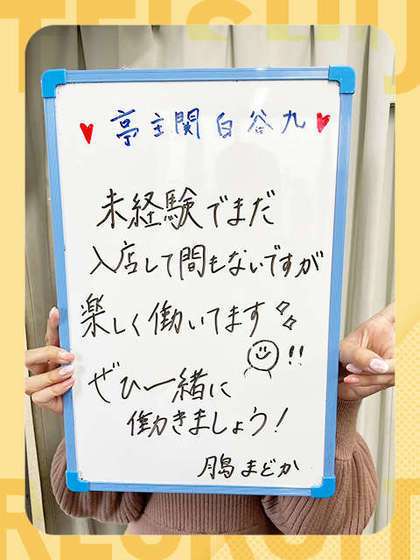 TEISHU
♥ 亭主関白谷九 ♥
未経験でまだ
入店して間もないですが
楽しく働いてます
!!
ぜひ一緒に
働きましょう!
月島まどか
RECRUIT